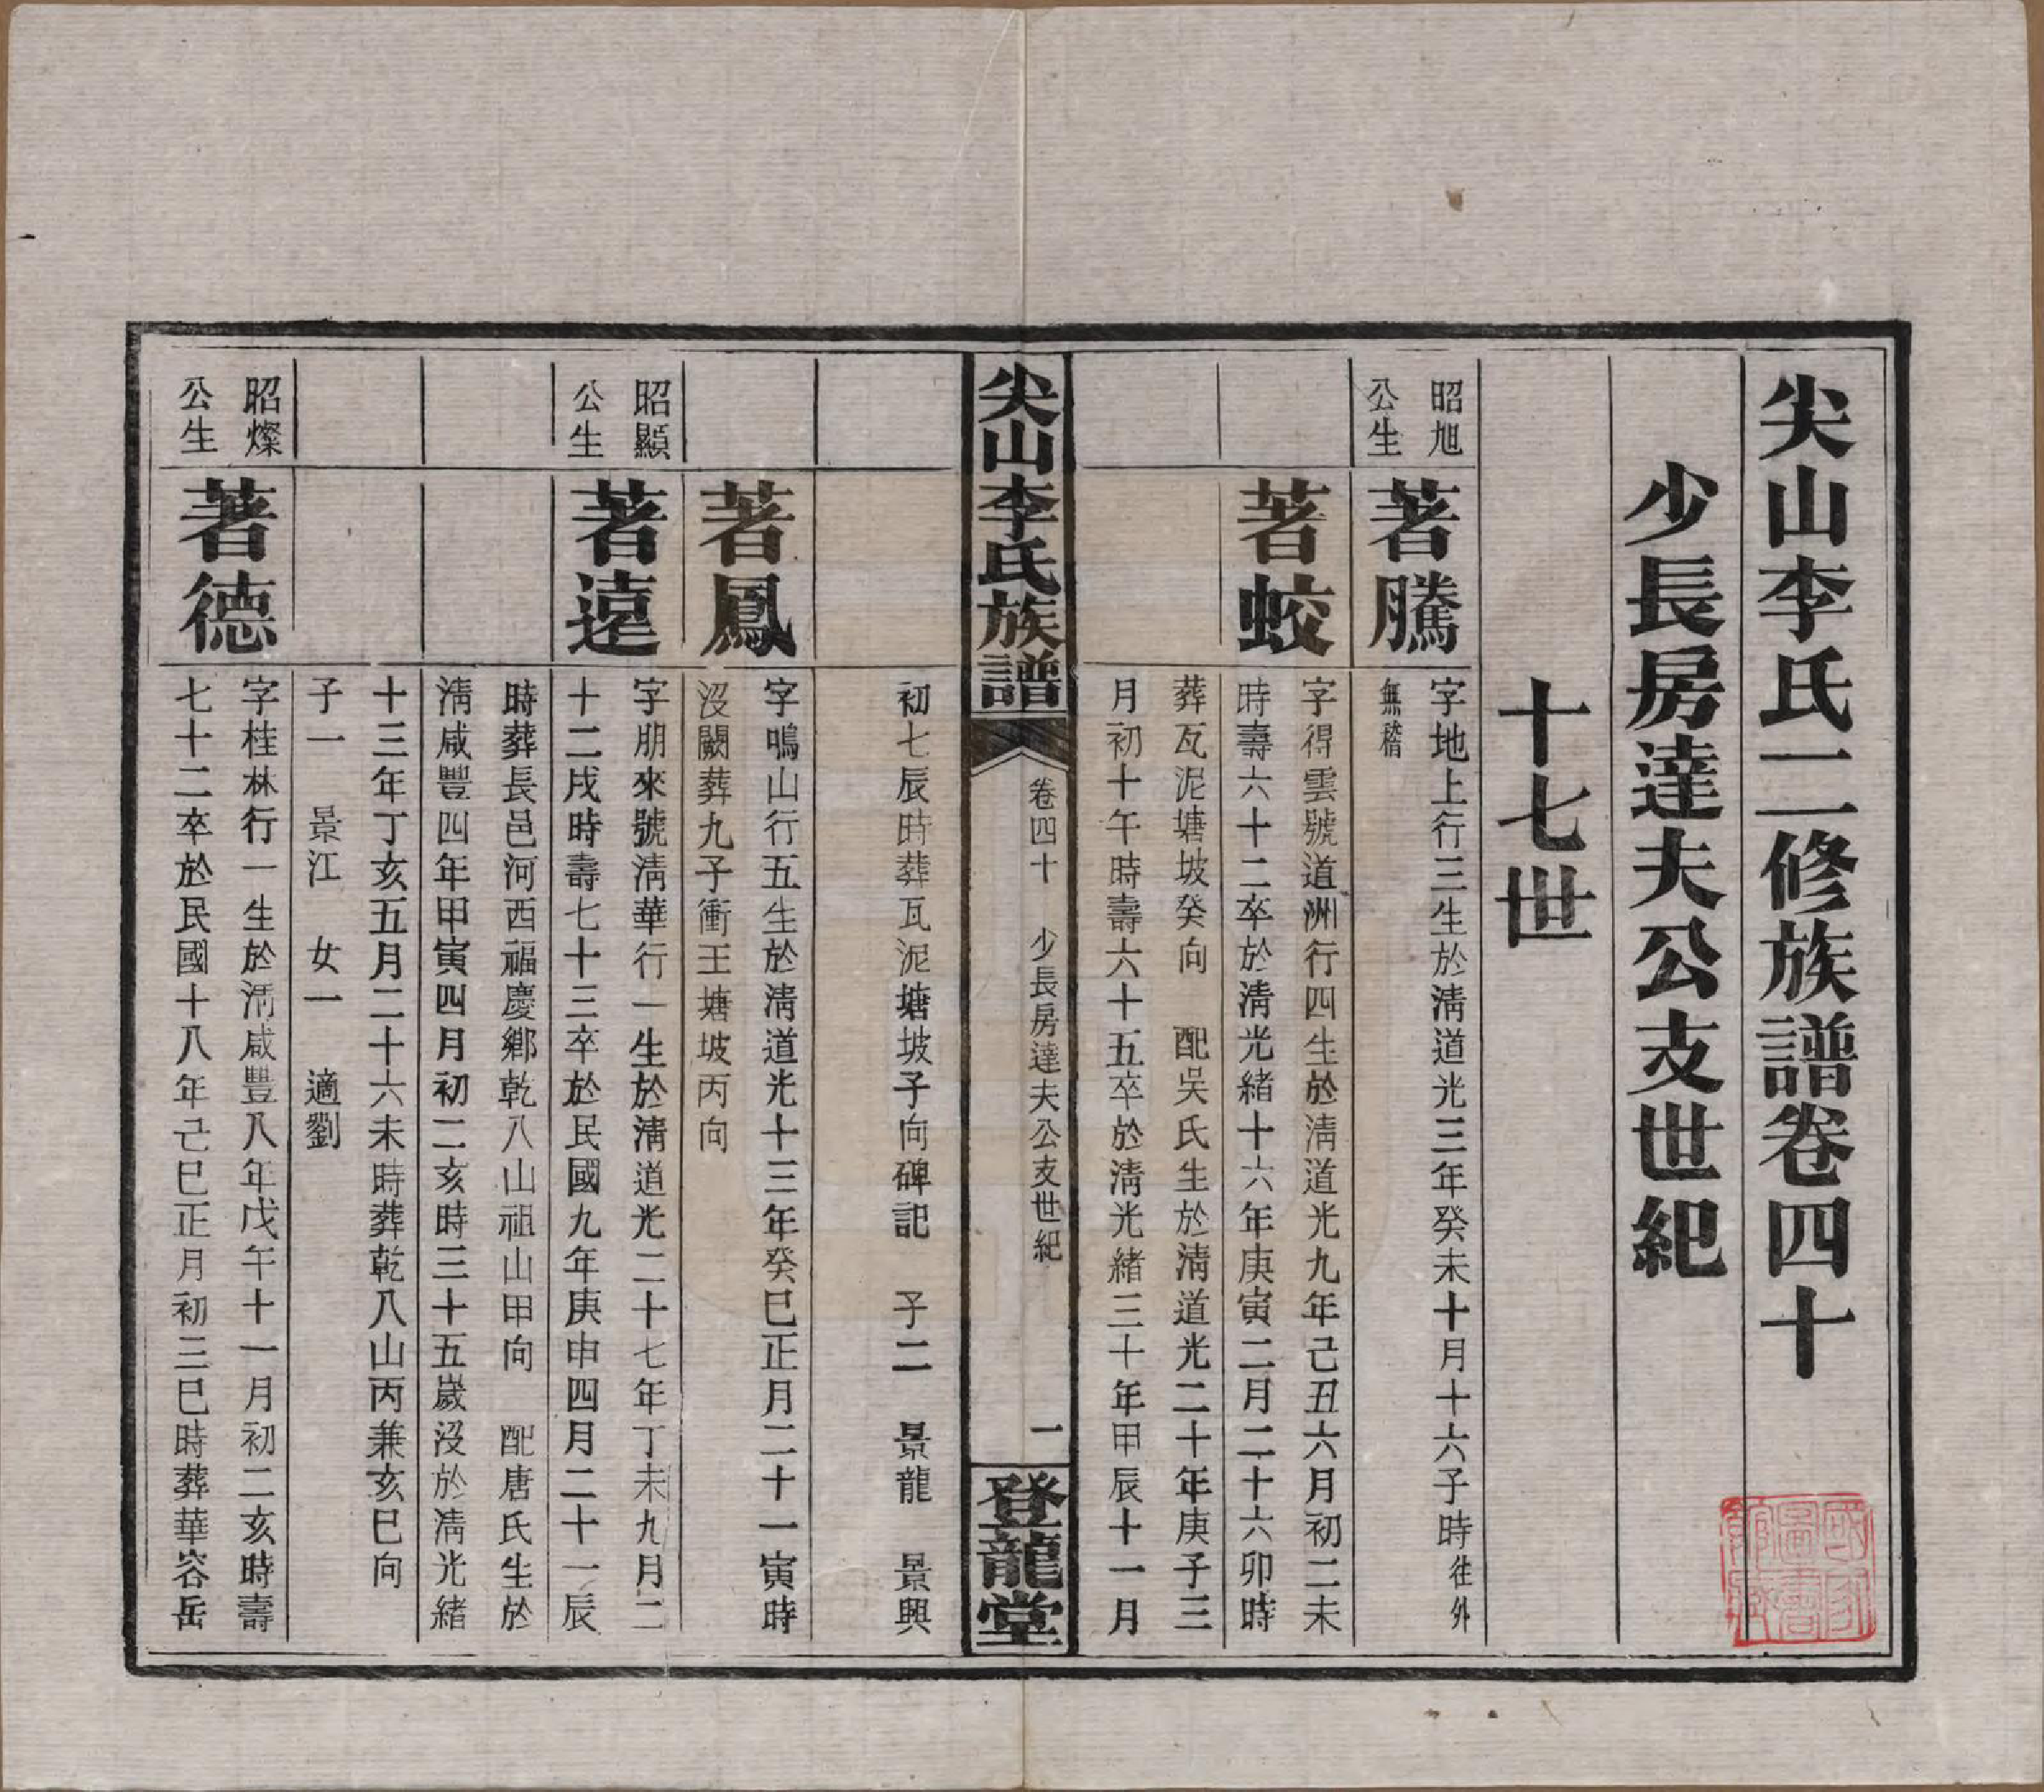 尖山李氏二修族譜卷四十
少長房達夫公支世紀
十七世
昭旭
公生
著騰
字地上行三生於淸道光三年癸未十月十六子時往外
無稽
著蛟
字得雲號道洲行四生於淸道光九年己丑六月初二未
時壽六十二卒於淸光緒十六年庚寅二月二十六卯時
葬瓦泥塘坡癸向　配吳氏生於淸道光二十年庚子三
月初十午時壽六十五卒於淸光緒三十年甲辰十一月
尖山李氏族譜
卷四十　少長房達夫公支世紀
一
登龍堂
初七辰時葬瓦泥塘坡子向碑記　子二　景龍　景興
著鳳
字鳴山行五生於淸道光十三年癸巳正月二十一寅時
沒闕葬九子衝王塘坡丙向
昭顯
公生
著遠
字朋來號淸華行一生於淸道光二十七年丁未九月二
十二戌時壽七十三卒於民國九年庚申四月二十一辰
時葬長邑河西福慶鄉乾八山祖山甲向　配唐氏生於
淸咸豐四年甲寅四月初二亥時三十五歲沒於淸光緒
十三年丁亥五月二十六未時葬乾八山丙兼亥巳向
子一　景江　女一　適劉
昭燦
公生
著德
字桂林行一生於淸咸豐八年戊午十一月初二亥時壽
七十二卒於民國十八年己巳正月初三巳時葬華容岳